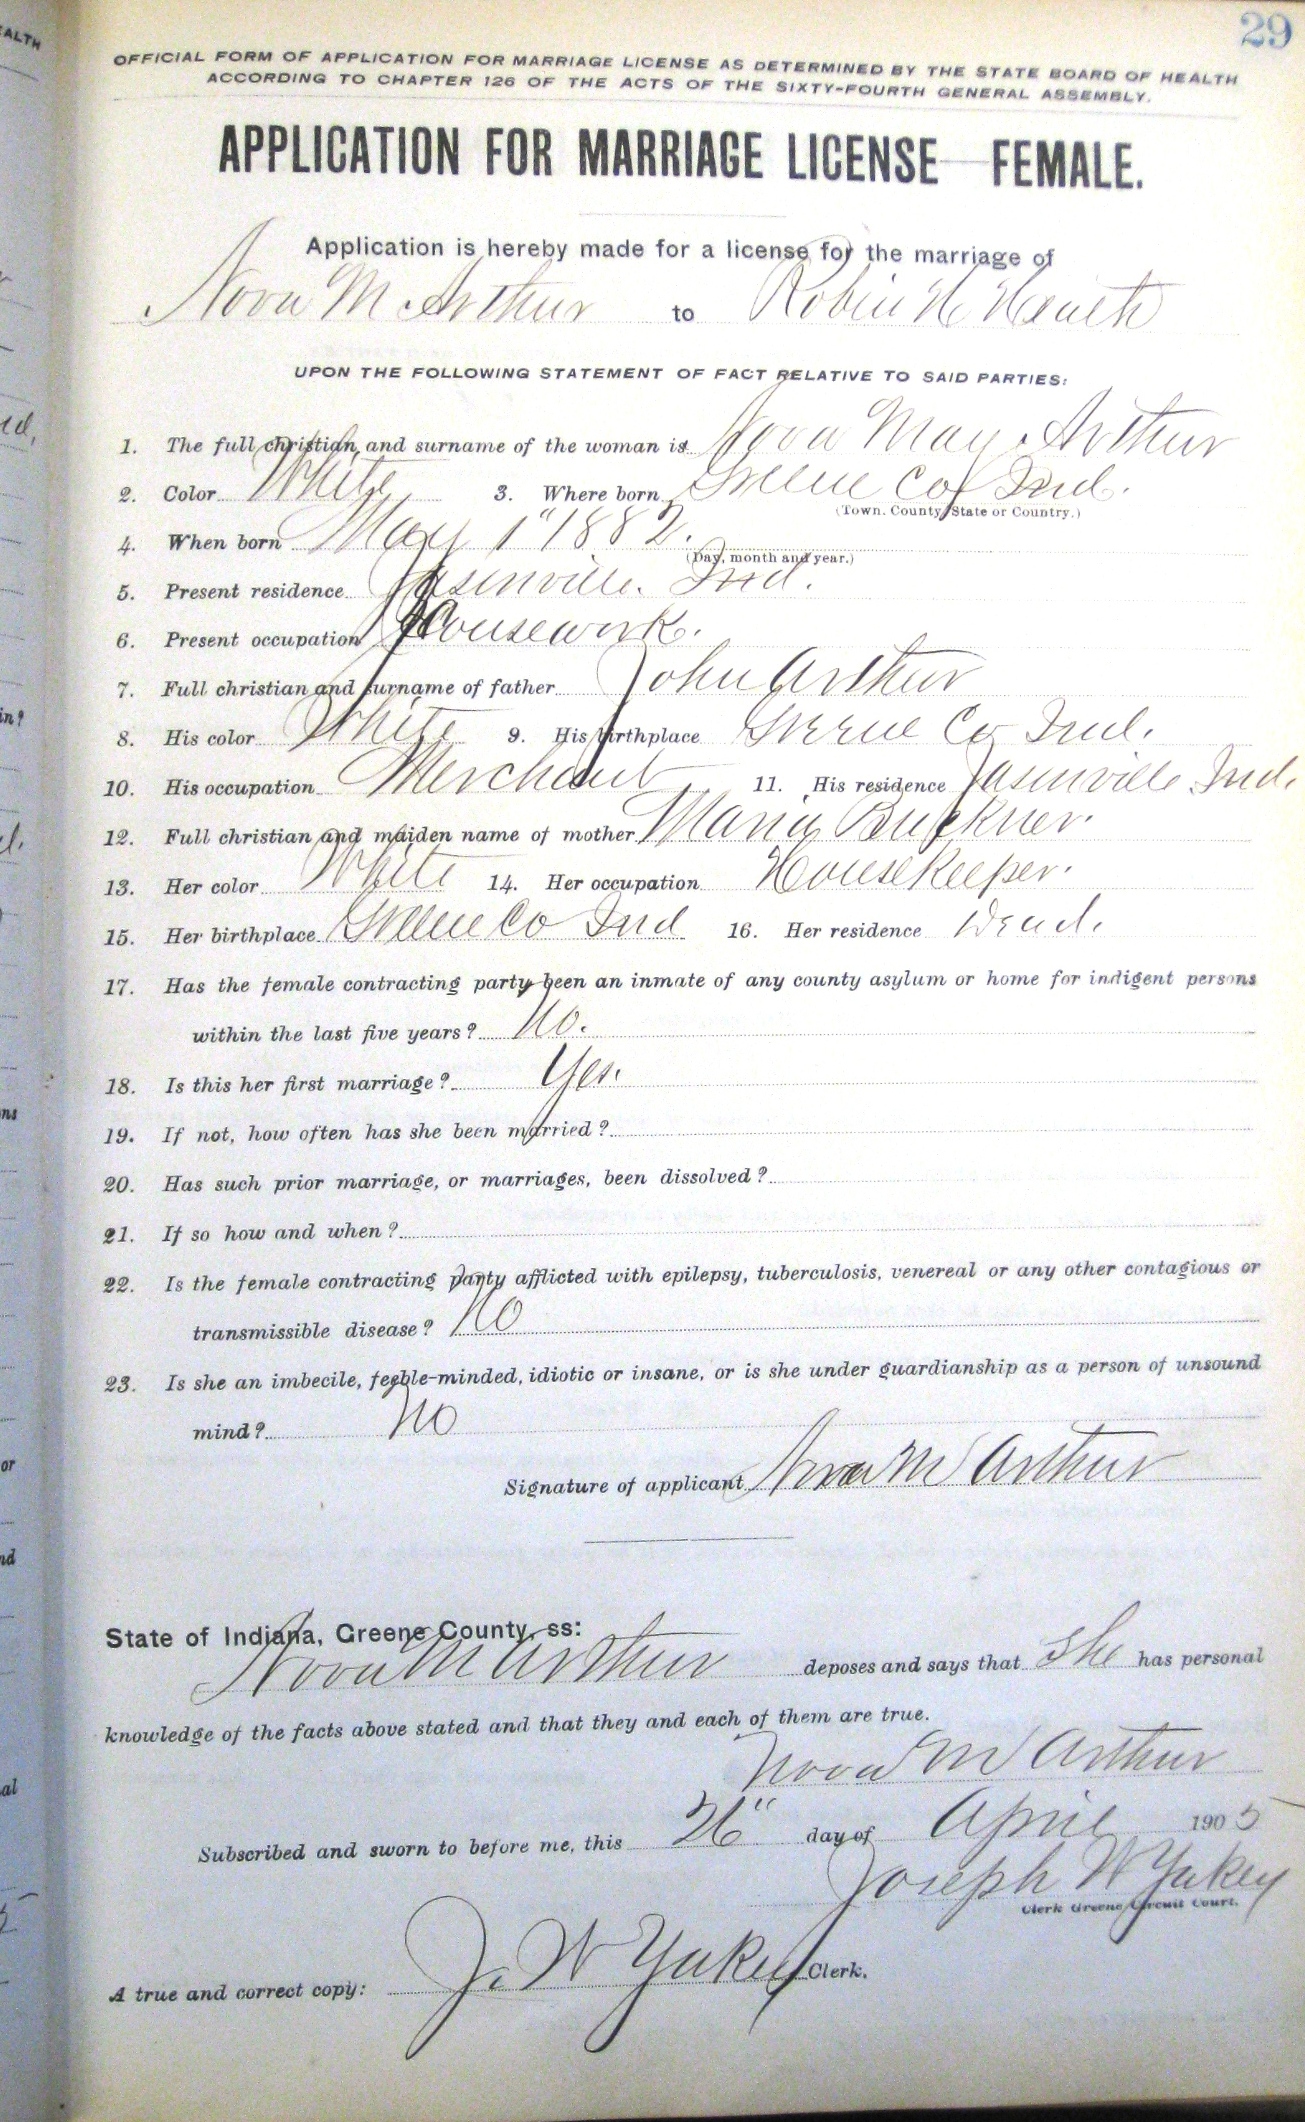 29
OFFICIAL FORM OF APPLICATION FOR MARRIAGE LICENSE AS DETERMINED BY THE STATE BOARD OF HEALTH
ACCORDING TO CHAPTER 126 OF THE ACTS OF THE SIXTY-FOURTH GENERAL ASSEMBLY.
APPLICATION FOR MARRIAGE LICENSE FEMALE.
Application is hereby made for a license for the marriage of
Nova M Arthur to Robin H
UPON THE FOLLOWING STATEMENT OF FACT RELATIVE TO SAID PARTIES:
1. The full christian and surname of the woman is Nova May Arthur
2. Color White 3. Where born Greene Co Ind.
(Town. County, State or Country.)
4. When born May 1" 1882.
(Day, month and year.)
5. Present residence Jasonville. Ind.
6. Present occupation Housework.
7. Full christian and surname of father John Arthur
8. His color White 9. His birthplace Greene Co Ind.
10. His occupation Merchant 11. His residence Jasonville Ind.
12. Full christian and maiden name of mother Maria Buckner.
13. Her color White 14. Her occupation Housekeeper.
15. Her birthplace Greene Co Ind 16. Her residence Dead.
17. Has the female contracting party been an inmate of any county asylum or home for indigent persons
within the last five years? No.
18. Is this her first marriage? Yes.
19. If not, how often has she been married?
20. Has such prior marriage, or marriages, been dissolved?
21. If so how and when?
22. Is the female contracting party afflicted with epilepsy, tuberculosis, venereal or any other contagious or
transmissible disease? No
23. Is she an imbecile, feeble-minded, idiotic or insane, or is she under guardianship as a person of unsound
mind? No
Signature of applicant Nova M Arthur
State of Indiana, Greene County, ss:
Nova M Arthur deposes and says that She has personal
knowledge of the facts above stated and that they and each of them are true.
Nova M Arthur
Subscribed and sworn to before me, this 26" day of April 1905
Joseph W Yakey
Clerk Greene Circuit Court.
A true and correct copy: J. W Yakey Clerk.